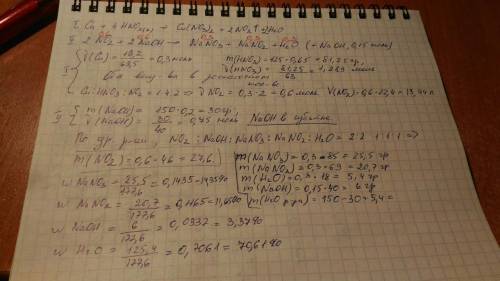 I. Cu + 4 HNO3(к) → Cu(NO3)2 + 2NO2↑ + 2H2O
0,6 0,6 0,3 0,3 0,3
II 2 NO2 + 2 NaOH → NaNO3 + NaNO2 + H2O (+ NaOH, 0,15 моль)
I ν(Cu) = 19,2/63,5 = 0,3 моль
m(HNO3) = 125·0,65 = 81,25 гр,
ν(HNO3) = 81,25/63 = 1,289 моль
Оба
Cu : HNO3 : NO2 = 1:4:2 ⇒ ν NO2 = 0,3·2 = 0,6 моль V(NO2) = 0,6·22,4 = 13,44 л
II m(NaOH) = 150·0,2 = 30 гр,
ν(NaOH) = 30/40 = 0,75 моль NaOH в избытке
По ур. реак, NO2 : NaOH : NaNO3 : NaNO2 : H2O = 2:2:1:1:1 ⇒
m(NO2) = 0,6·46 = 27,6.
m(NaNO3) = 0,3·85 = 25,5 гр
m(NaNO2) = 0,3·69 = 20,7 гр
m(H2O) = 0,3·18 = 5,4 гр
m(NaOH) = 0,15·40 = 6 гр
m(H2O р-ра) = 150-30+5,4 =
w NaNO3 = 25,5/177,6 = 0,1435 = 14,35%
w NaNO2 = 20,7/177,6 = 0,1165 = 11,65%
w NaOH = 6/177,6 = 0,0337 = 3,37%
w H2O = 125,4/177,6 = 0,7061 = 70,61%